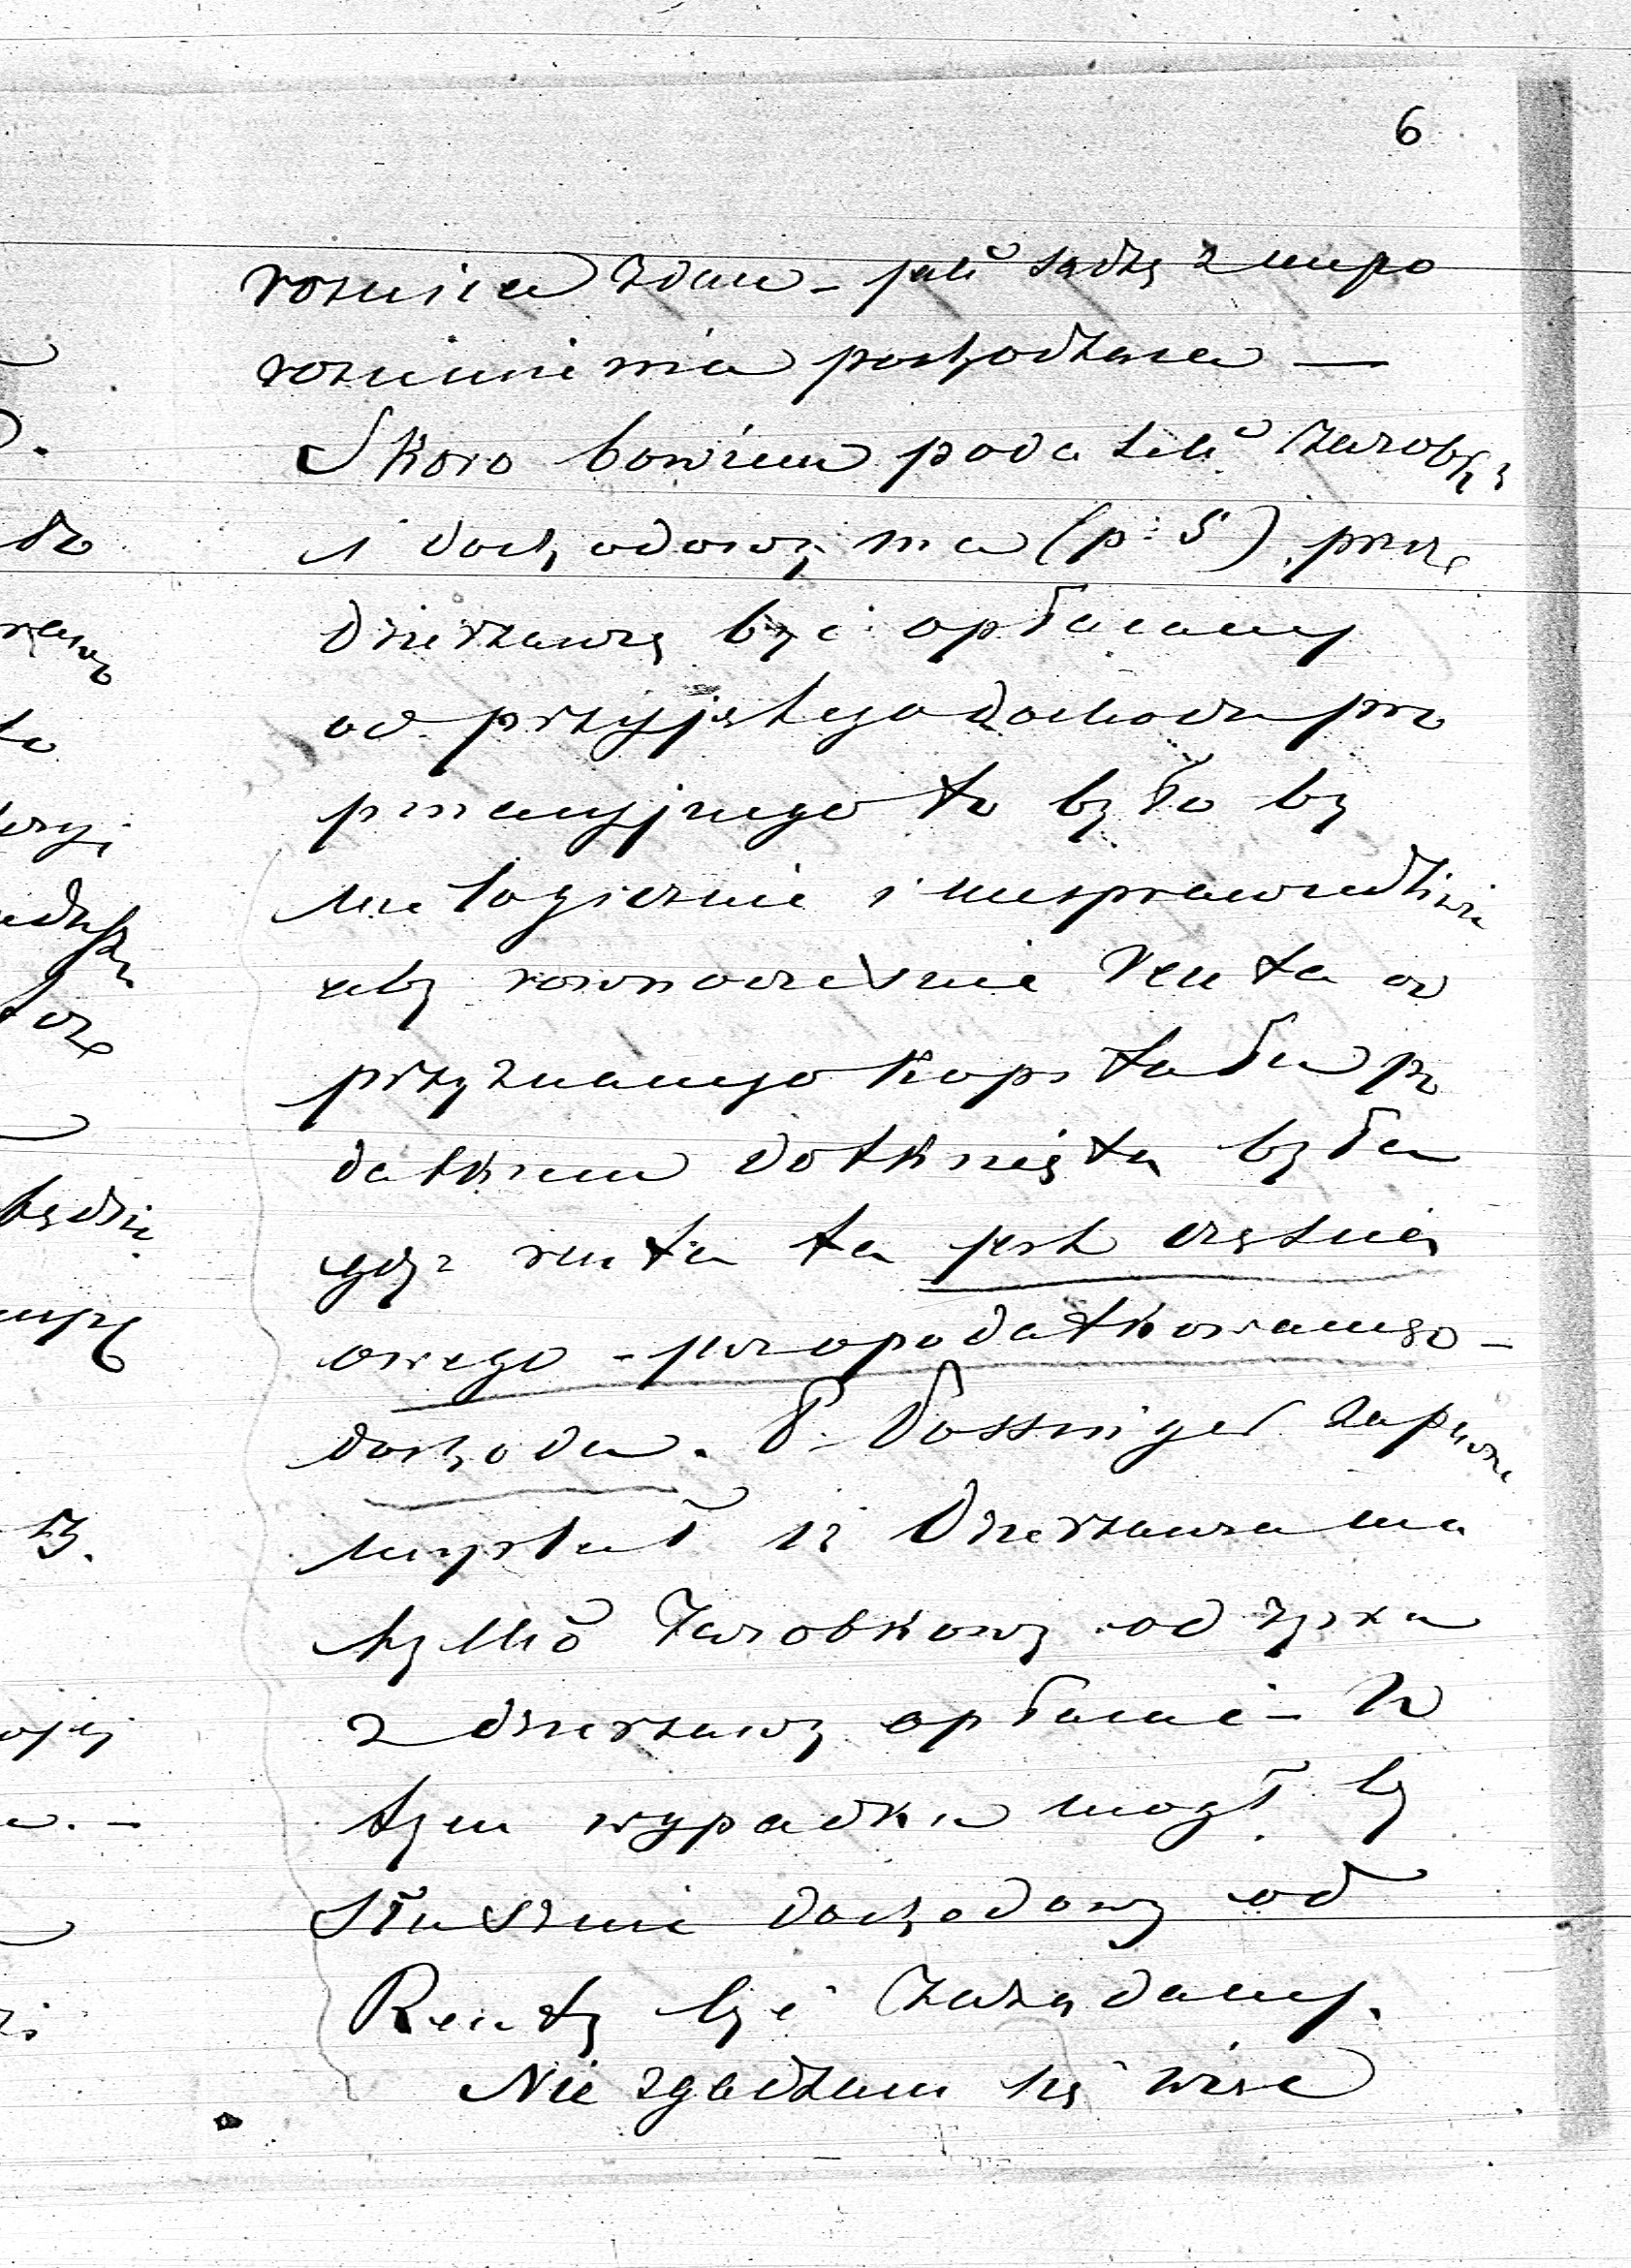 6
rożnica zdań - jak sądzę z niepo
rozumienia pochodząca —
Skoro bowiem podatek zarobk:
i dochodowy ma (p: 5) przez
Dzierżawcę być opłacany
od przyjętego dochodu pro
pinacyjnego to było by
nie logicznie i niesprawiedliwie
aby rownocześnie Renta od
przyznanego kapitału po
datkiem dotknięta była
gdyż renta ta jest częścią
owego - już opodatkowanego -
dochodu. P. Possinger zapewne
myślał iż Dzierżawca ma
tylko Zarobkowy od zysku
z dzierżawy opłacać - W
tym wypadku mogł by
słusznie dochodowy od
Renty być zażądany.
Nie zgadzam się więc